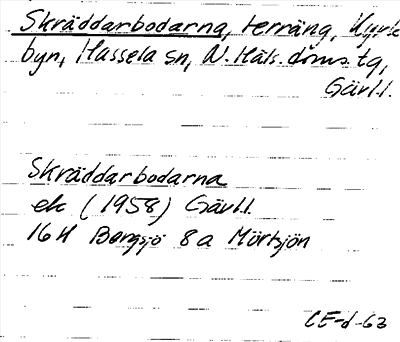 Skräddarbodarna, terräng, Kyrk-
byn, Hassela sn, N. Häls. doms. tg,
Gävl.l.
Skräddarbodarna
ek (1958) Gävl.l.
16 H Bergsjö 8a Mörtsjön
CE-d-63